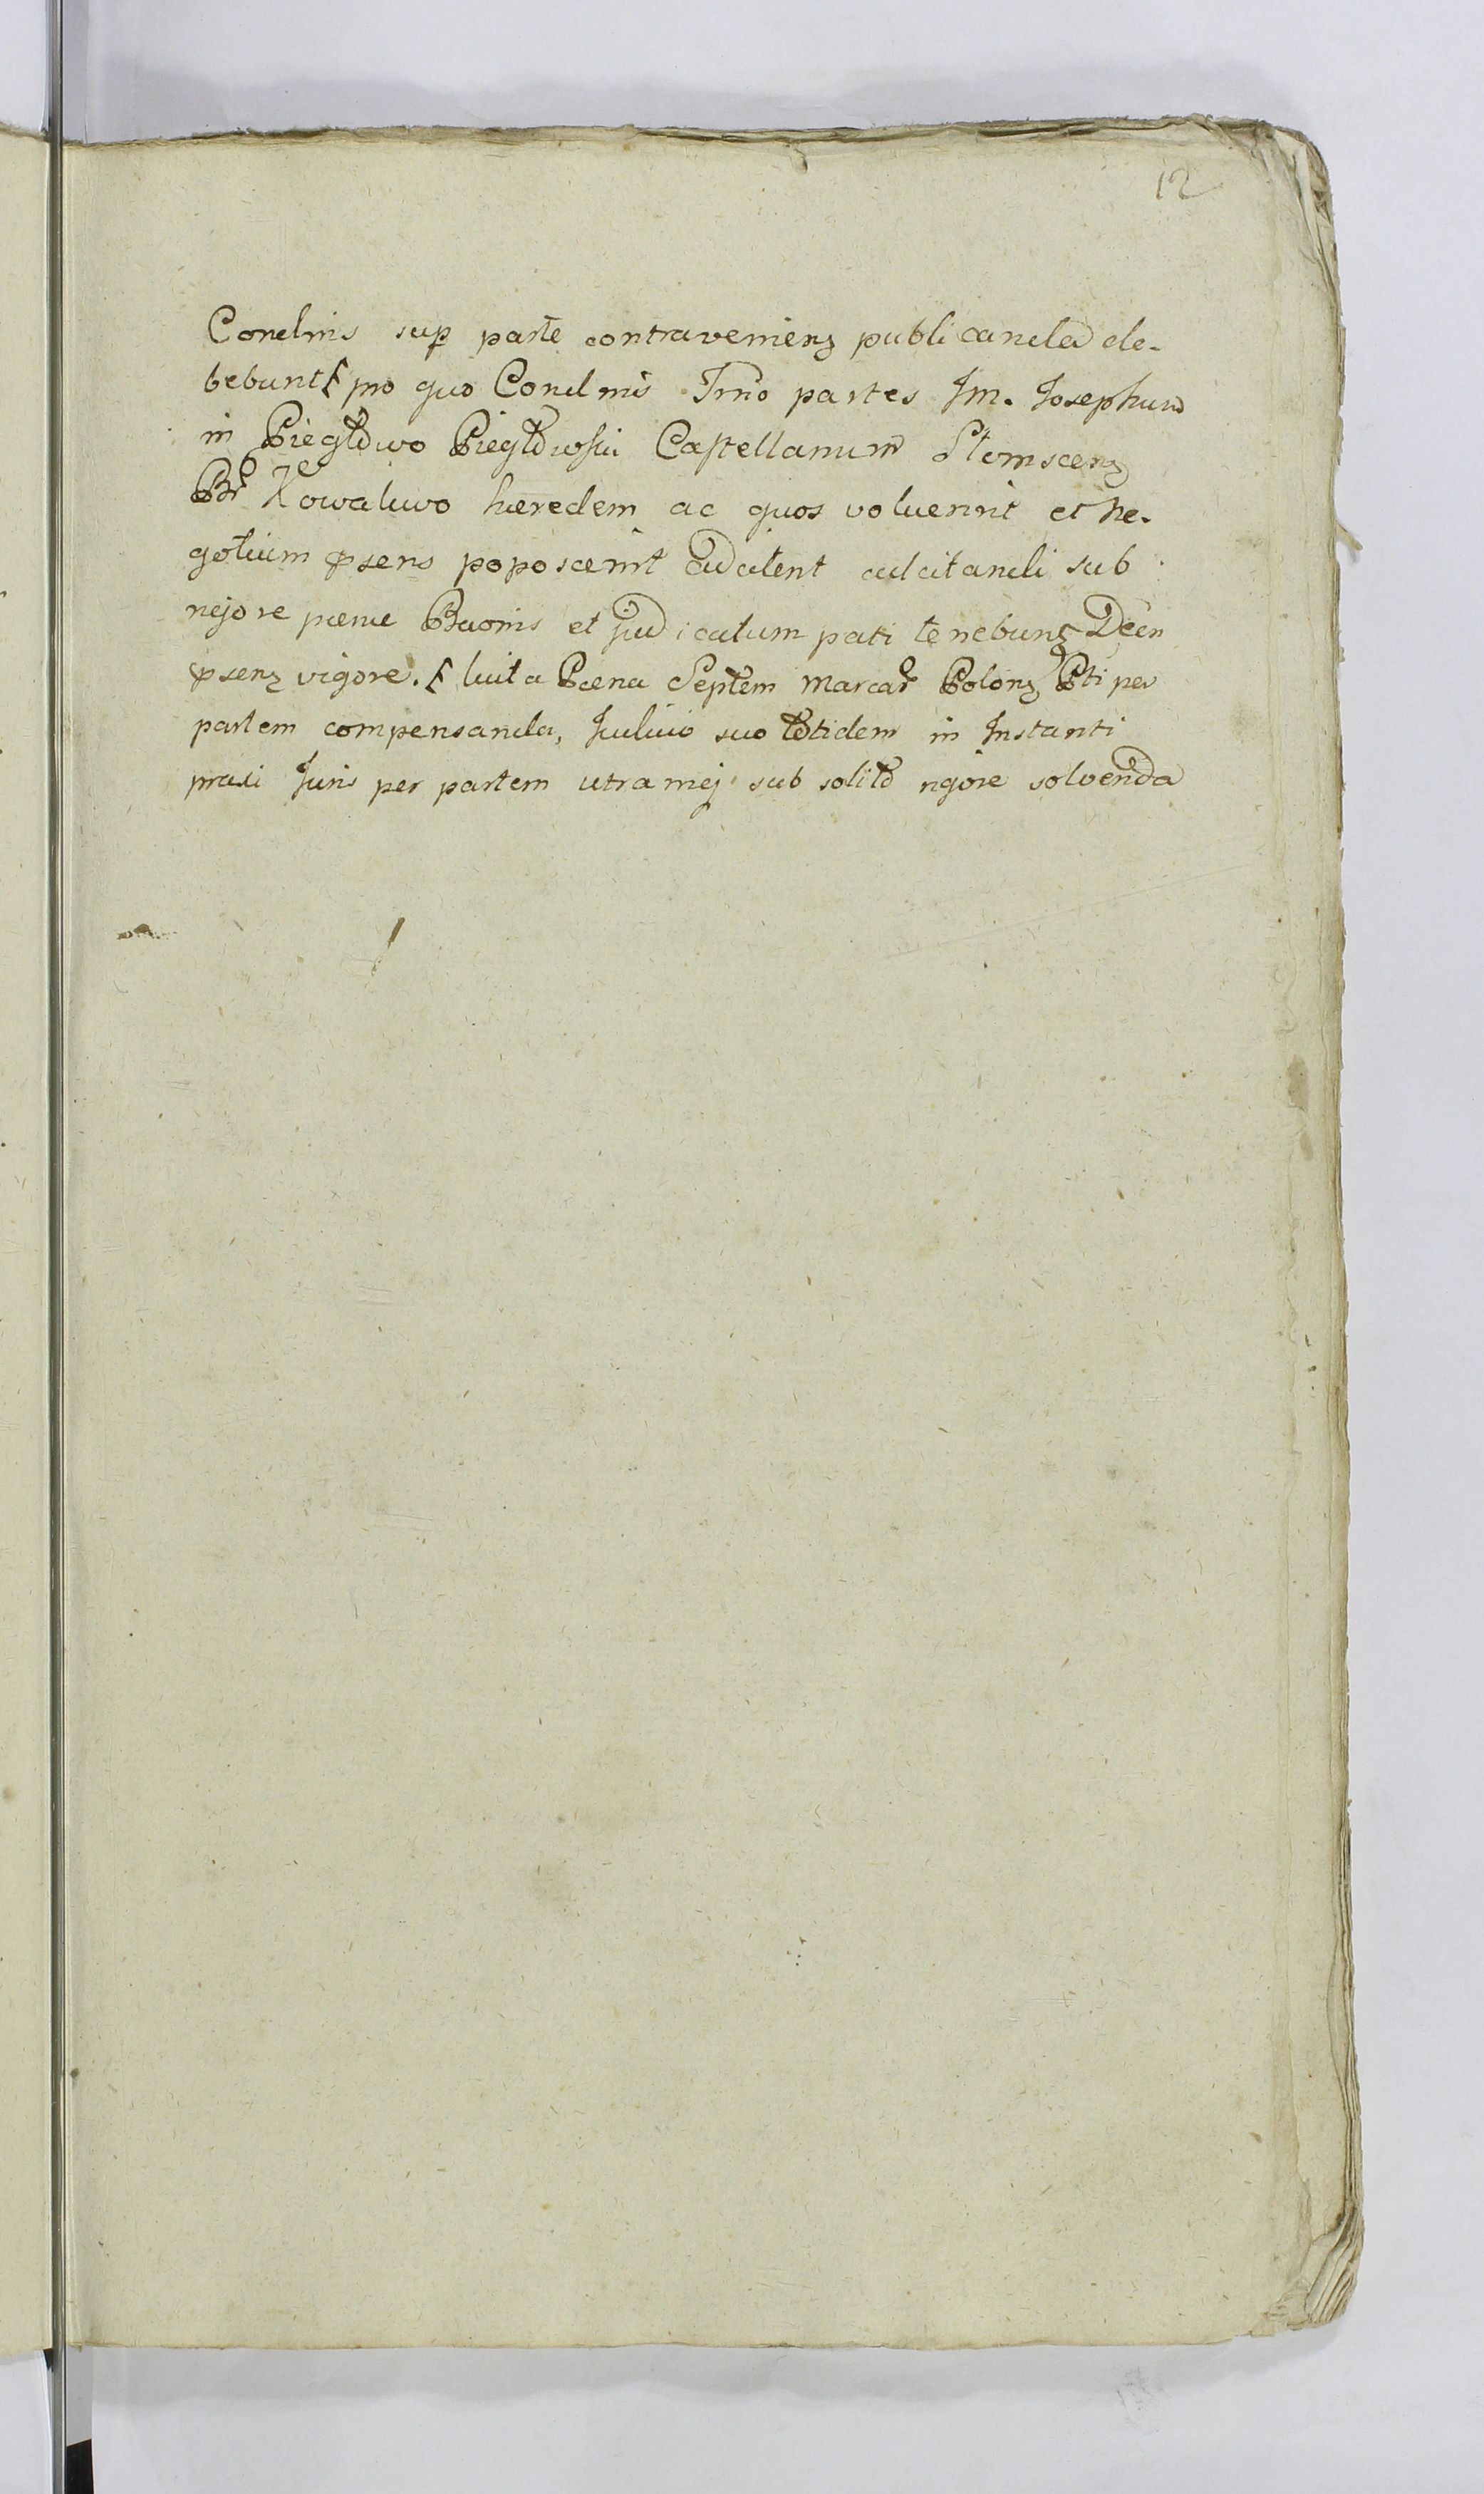 12
Condmis sup parte contravenienz publicanda de-
bebunt pro quo Condmis Trno partes Jm. Josephum
in Piegłowo Piegłowski Castellanum Słomscenz
Br Kowalewo hæredem ac quos voluerint et ne-
gotium psens poposcerint adatent adcitandi sub
rigore pænæ Baonis et judicatum pati tenebunz Decn
psenz vigore. luita Pæna Septem Marcar Polonz Pti per
partem compensanda, Judicio suo totidem in Instanti
praxi Juris per partem utramq sub solito rigore solvenda